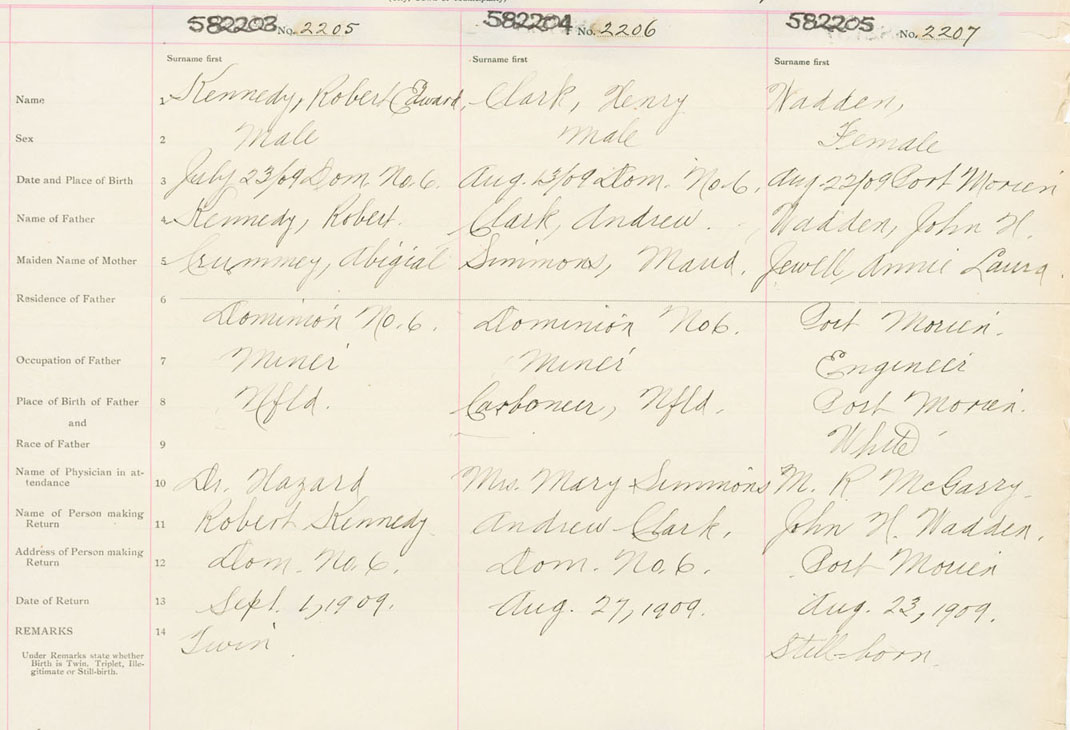 582203 No. 2205 582204 No. 2206 582205 No. 2207
Surname first Surname first Surname first
Name 1 Kennedy, Robert Edward, Clark, Henry Wadden,
Sex 2 Male Male Female
Date and Place of Birth 3 July 23/09 Dom. No. 6. Aug. 13/09 Dom. No. 6. Aug. 22/09 Port Morien
Name of Father 4 Kennedy, Robert. Clark, Andrew. Wadden, John H.
Maiden Name of Mother 5 Crummey, Abigial Simmons, Maud. Jewell, Annie Laura.
Residence of Father 6
Dominion No. 6. Dominion No 6. Port Morien.
Occupation of Father 7 Miner Miner Engineer
Place of Birth of Father 8 Nfld. Carboneer, Nfld. Port Morien.
and
Race of Father 9 White
Name of Physician in at-
tendance 10 Dr. Hazard Mrs. Mary Simmons M. R McGarry.
Name of Person making
Return 11 Robert Kennedy Andrew Clark. John H. Wadden.
Address of Person making
Return 12 Dom. No. 6. Dom. No. 6. Port Morien
Date of Return 13 Sept. 1, 1909. Aug. 27, 1909. Aug. 23, 1909.
REMARKS 14 Twin. Still-born.
Under Remarks state whether
Birth is Twin, Triplet, Ille-
gitimate or Still-birth.